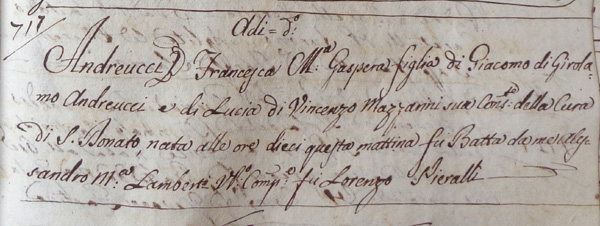 Adi = d.º
717
Andreucci D. Francesca M.ª Gaspera figlia di Giacomo di Girola-
mo Andreucci e di Lucia di Vincenzo Mazzarini sua Cons.te della Cura
di S. Bonato, nata alle ore dieci questa mattina fu Batta da me Ales-
sandro M.ª Lamberti Comp.º fu Lorenzo Pieralli